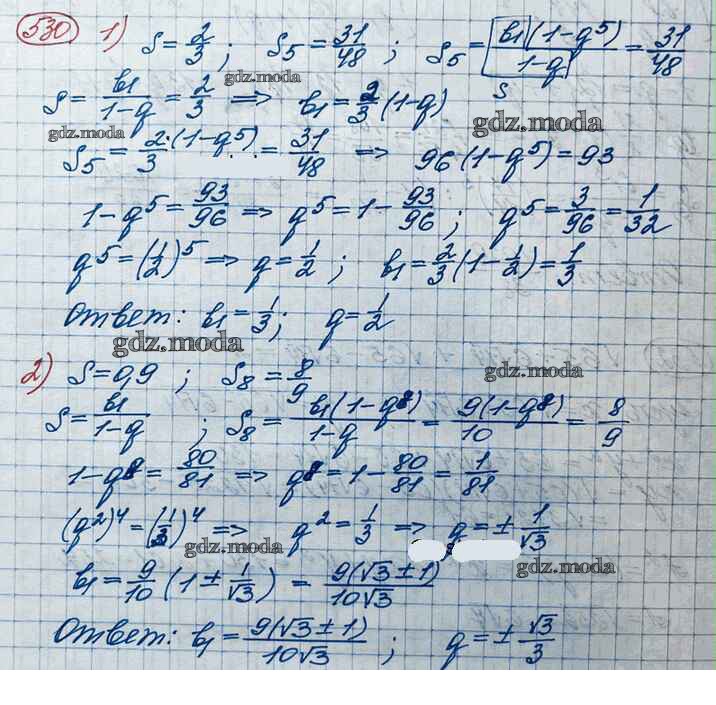 530 1) S = 2/3 ; S₅ = 31/48 ; S₅ = b₁(1-q⁵)/(1-q) = 31/48
S
S = b₁/(1-q) = 2/3 ⇒ b₁ = 2/3 (1-q)
gdz.moda
gdz.moda
gdz.moda
S₅ = 2·(1-q⁵)/3 = 31/48 ⇒ 96(1-q⁵) = 93
1-q⁵ = 93/96 ⇒ q⁵ = 1 - 93/96 ; q⁵ = 3/96 = 1/32
q⁵ = (1/2)⁵ ⇒ q = 1/2 ; b₁ = 2/3 (1 - 1/2) = 1/3
Ответ: b₁ = 1/3 ; q = 1/2
gdz.moda
2) S = 0,9 ; S₈ = 8/9
gdz.moda
S = b₁/(1-q) ; S₈ = b₁(1-q⁸)/(1-q) = 9(1-q⁸)/10 = 8/9
1-q⁸ = 80/81 ⇒ q⁸ = 1 - 80/81 = 1/81
(q²)⁴ = (1/3)⁴ ⇒ q² = 1/3 ⇒ q = ± 1/√3
gdz.moda
gdz.moda
b₁ = 9/10 (1 ± 1/√3) = 9(√3 ± 1)/10√3
Ответ: b₁ = 9(√3 ± 1)/10√3 ; q = ± √3/3